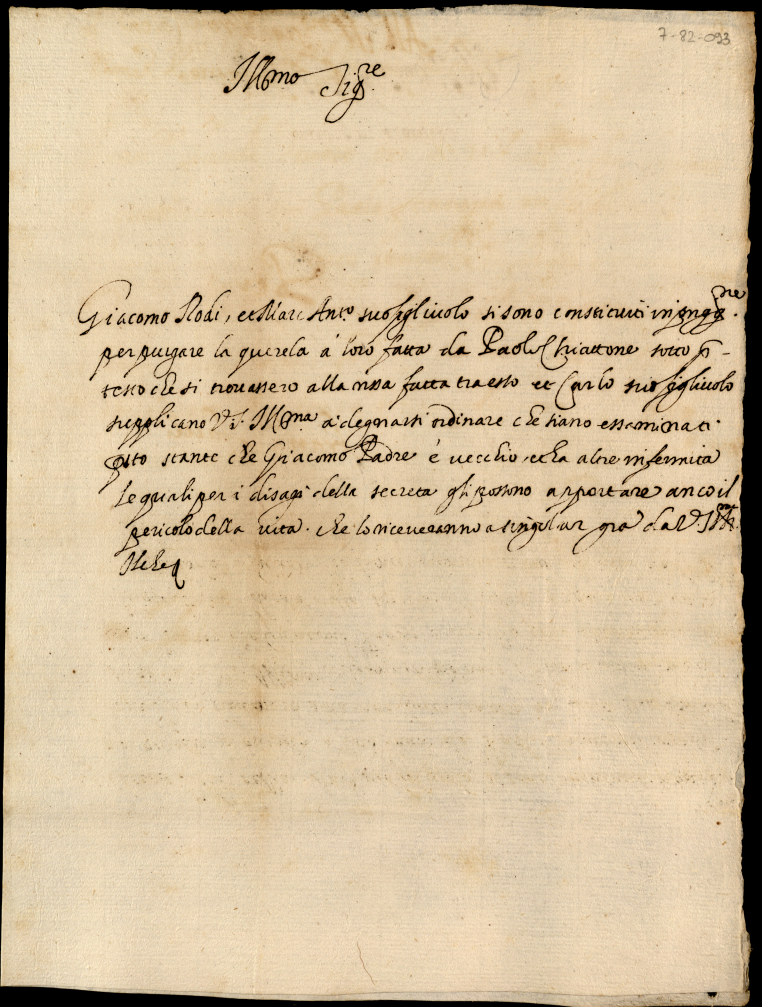 7-82-093
Ill.mo Sig.re
Giacomo Rodi, et Marc Ant.o suo figliuolo si sono constituiti in
per purgare la querela à loro fatta da Paolo Chiattone sotto p̄-
testo che si trovassero alla rissa fatta tra esso et Carlo suo figliuolo
supplicano V.S. Ill.ma à degnarsi ordinare che siano essaminati
p̄sto stante che Giacomo Padre è vecchio, et ha altre infermità
le quali per i disagi della secreta gli possono apportare anco il
pericolo della vita. che lo riceveranno a singular gra da V.S. Ill.ma